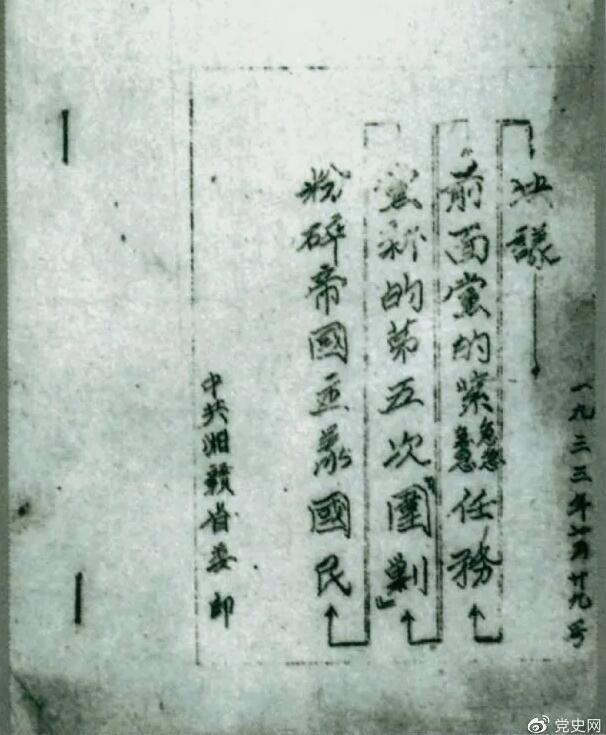 粉碎帝國主義國民
黨新的第五次“圍剿”
前面黨的緊急任務
決議
中共湘贛省委印
一九三三年 月廿九号
党史网